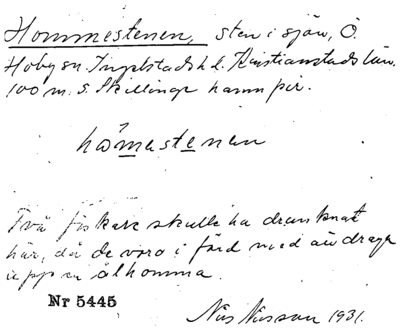 Hommestenen, sten i sjön, Ö.
Hoby sn. Ingelstads hd. Kristianstads län.
100 m. S Skillinge hamnpir.
håmestenen
Två fiskare skulle ha drunknat
här, då de voro i färd med att draga
upp en ålhomma.
Nr 5445
Nils Nilsson 1931.